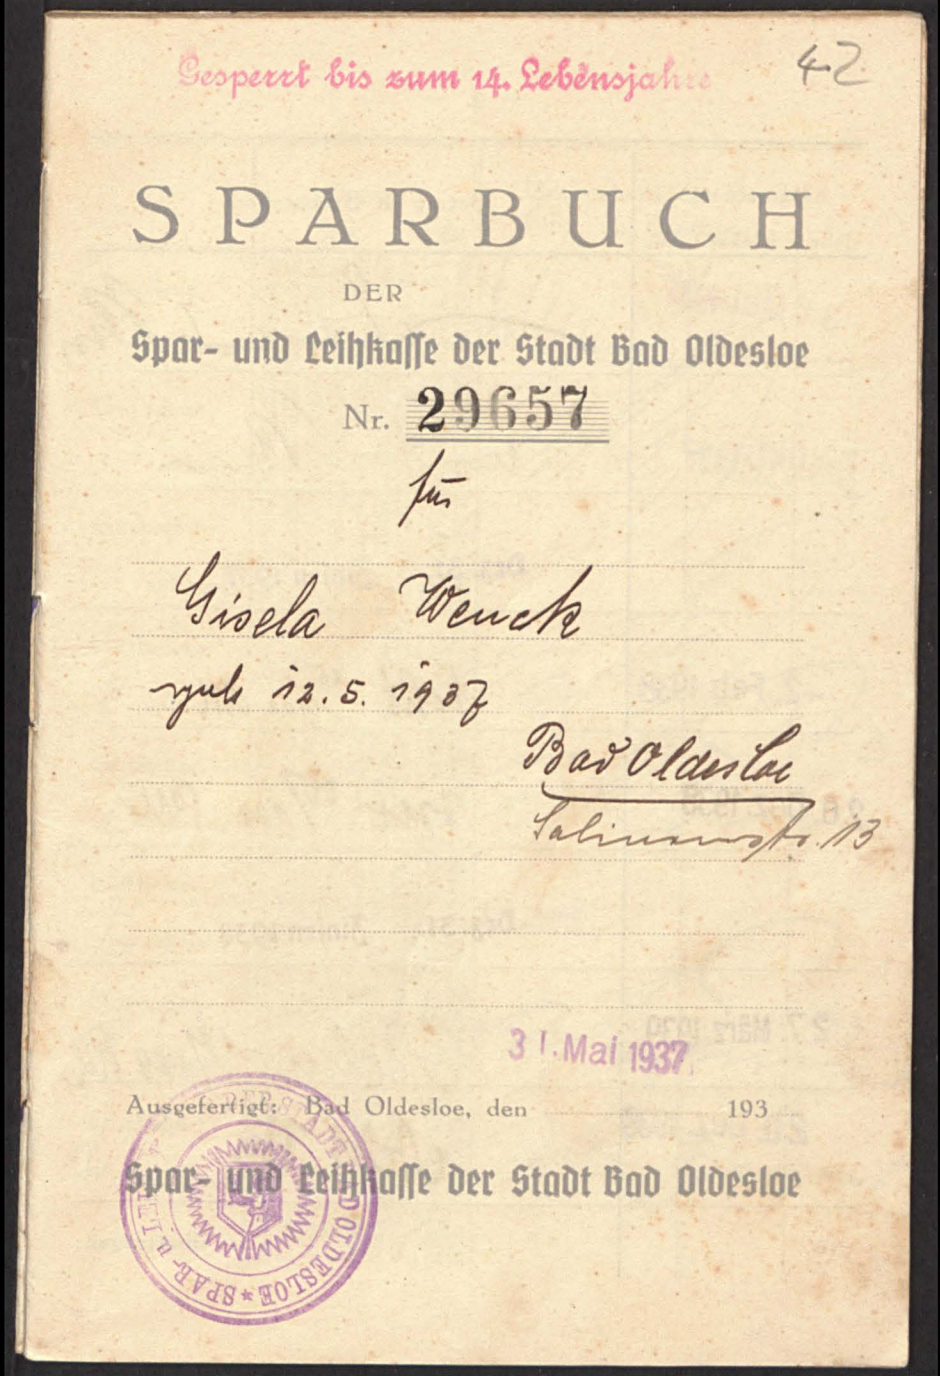 Gesperrt bis zum 14. Lebensjahre
42
SPARBUCH
DER
Spar- und Leihkasse der Stadt Bad Oldesloe
Nr. 29657
für
Gisela Wenck
geb. 12.5.1937
Bad Oldesloe
Salinenstr. 13
31. Mai 1937
Ausgefertigt: Bad Oldesloe, den 193
Spar- und Leihkasse der Stadt Bad Oldesloe
SPAR- u. LEIHKASSE DER STADT BAD OLDESLOE *